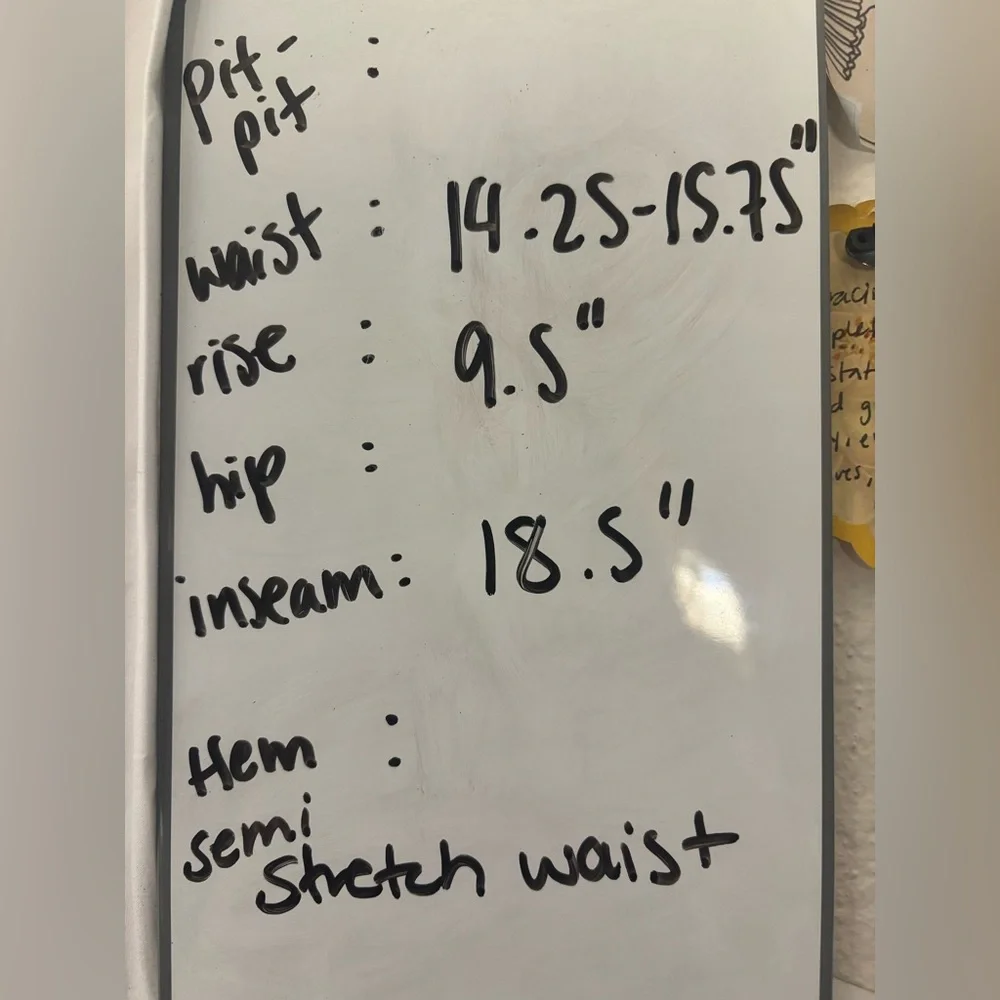 pit-
pit :
waist : 14.25-15.75"
rise : 9.5"
hip :
inseam: 18.5"
Hem :
semi
stretch waist